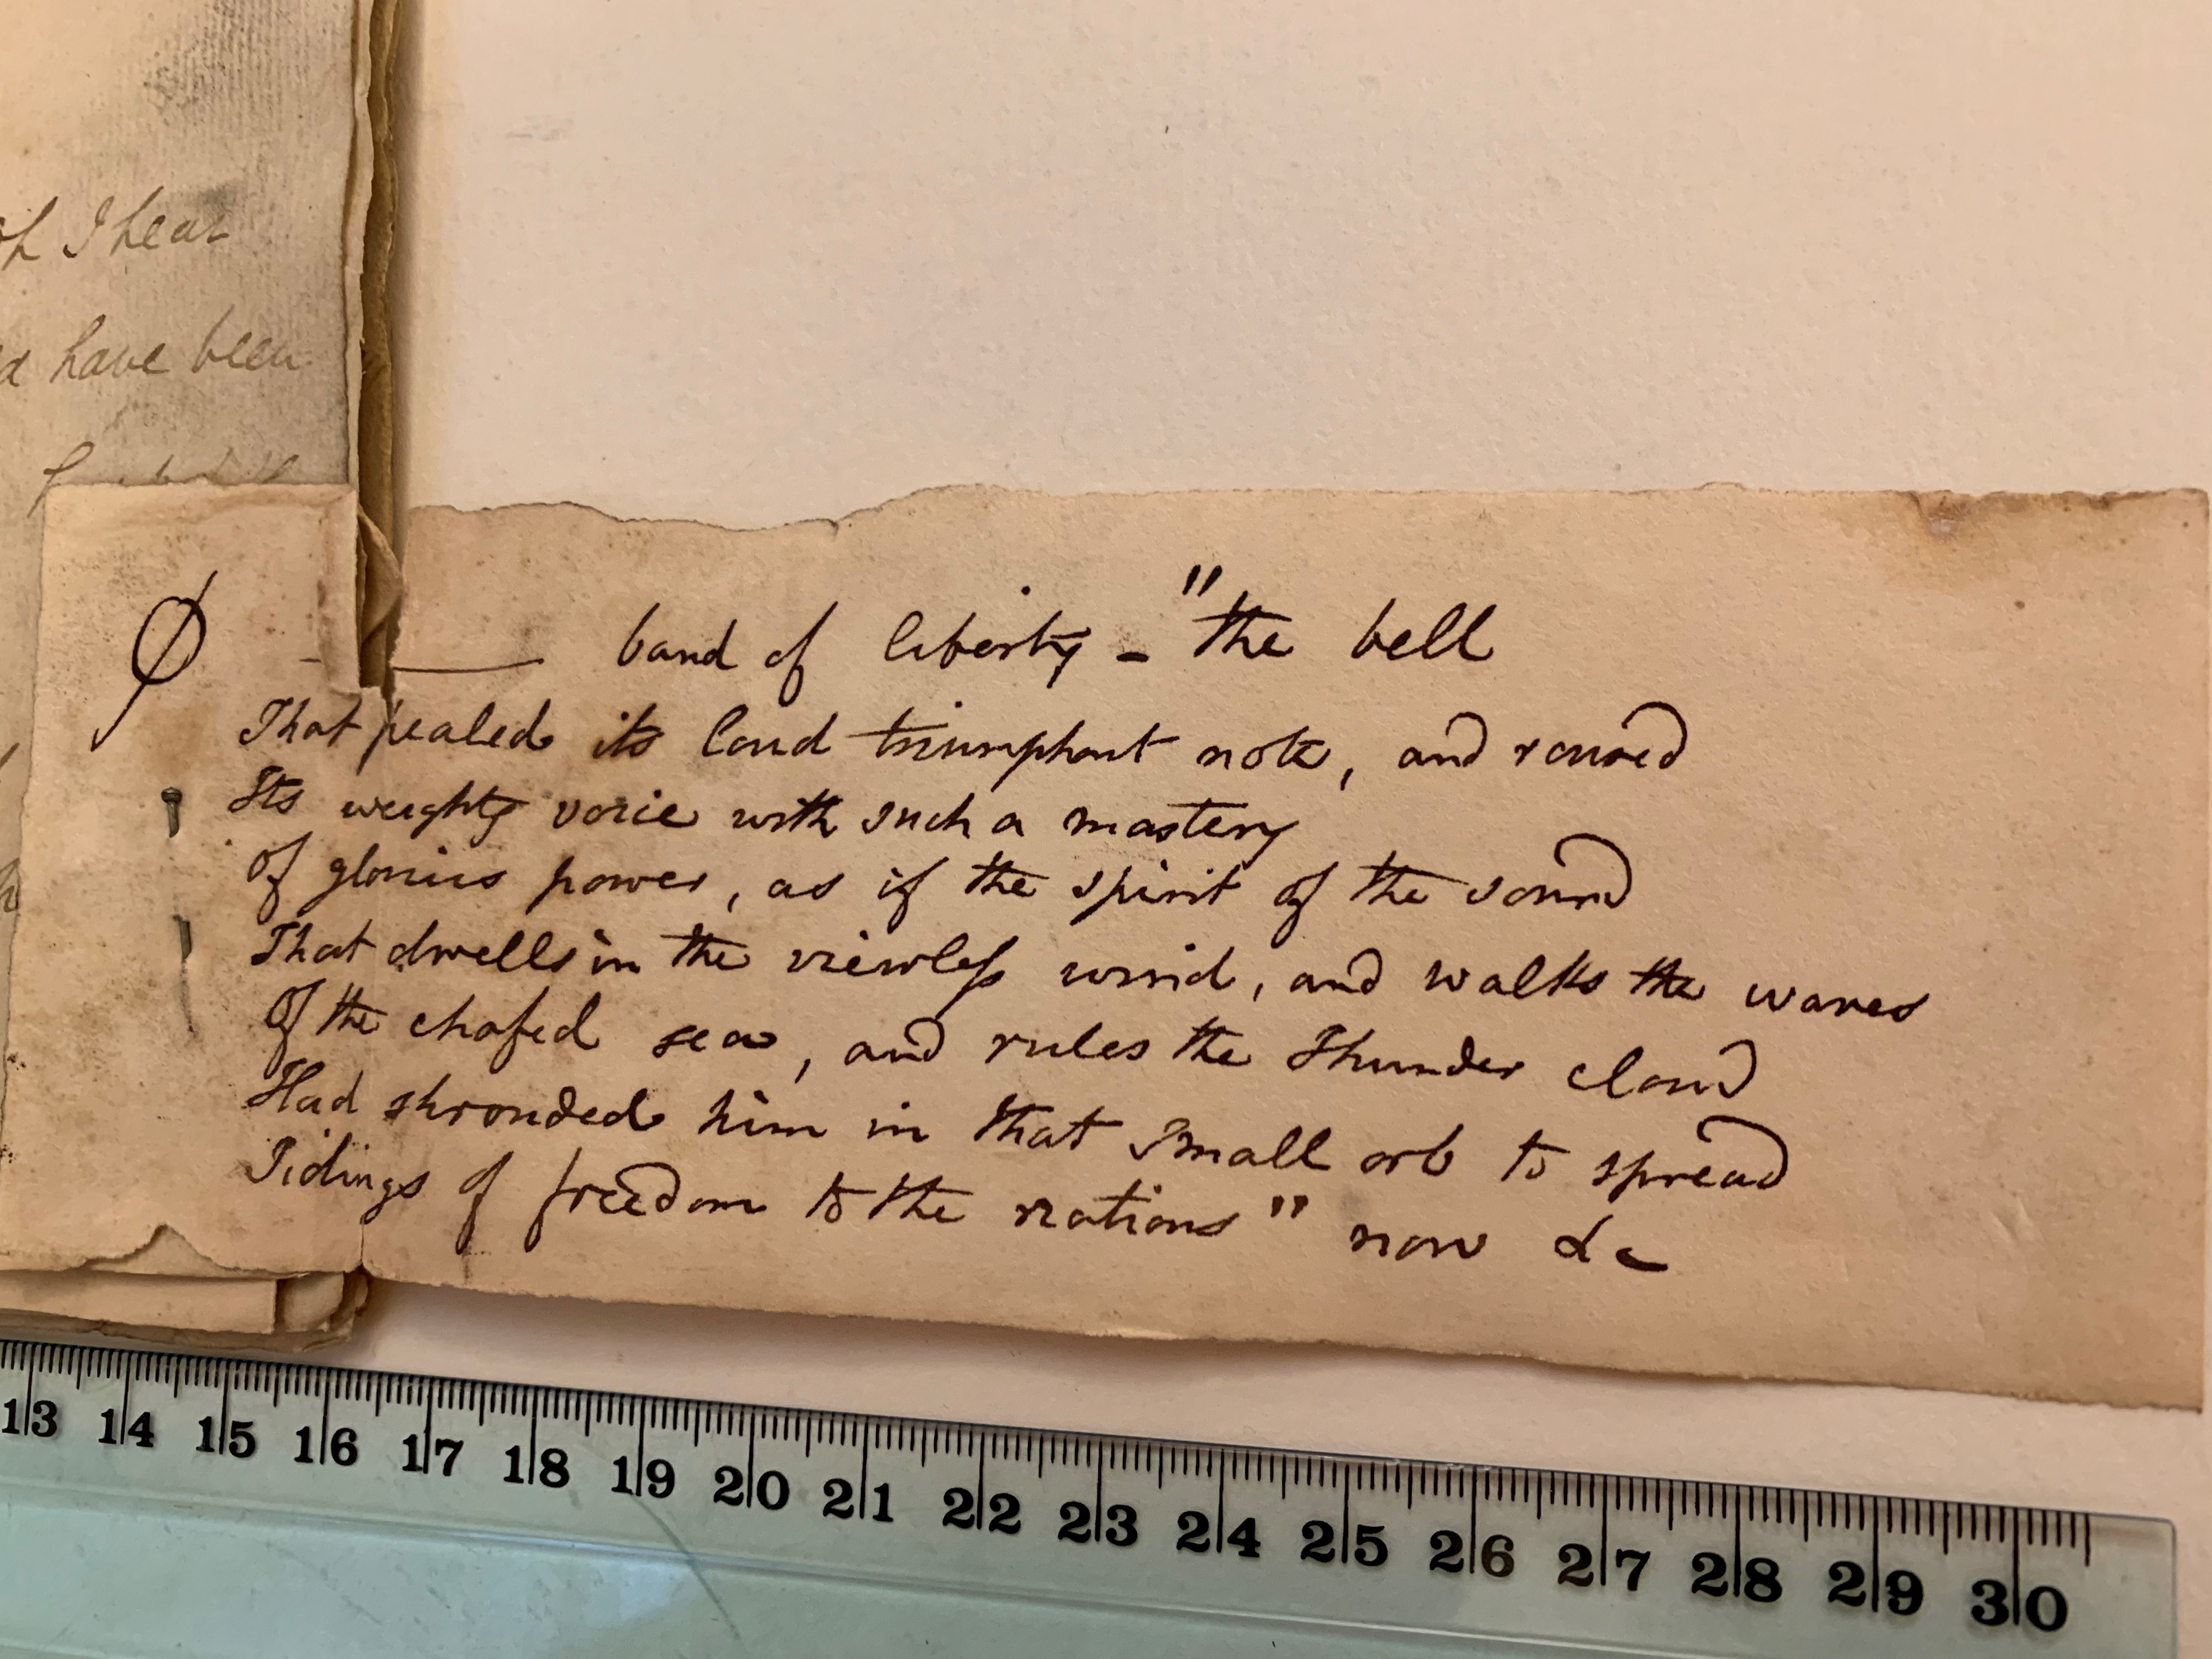 of I hear
have been
φ —— band of liberty - "the bell
That pealed its loud triumphant note, and roused
Its weighty voice with such a mastery
Of glorius power, as if the spirit of the sound
That dwells in the viewless wind, and walks the waves
Of the chafed sea, and rules the thunder cloud
Had shrouded him in that small orb to spread
Tidings of freedom to the nations" now &c
13 14 15 16 17 18 19 20 21 22 23 24 25 26 27 28 29 30